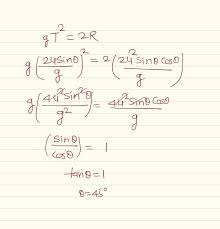 gT² = 2R
g(2usinθ/g)² = 2(2u²sinθcosθ/g)
g(4u²sin²θ/g²) = 4u²sinθcosθ/g
(sinθ/cosθ) = 1
tanθ = 1
θ = 45°